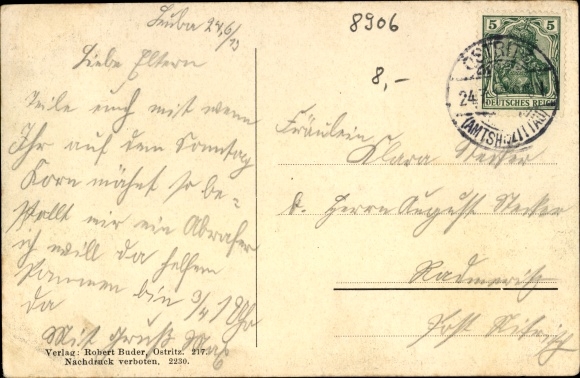 Leuba 24./6/13
8906
8,-
Liebe Eltern
Teile euch mit wenn
Ihr auf dem Sonntag
Korn mäht so be=
stellt mir ein Abraffer
ich will da helfen
bin 3/4 1 Uhr
da
Mit Gruß Max
Verlag: Robert Buder, Ostritz. 217.
Nachdruck verboten. 2230.
5 5
DEUTSCHES REICH
OSTRITZ
24.
(AMTSH. ZITTAU)
Fräulein
Klara
b. Herrn August
Radmeritz
Post Nikrisch